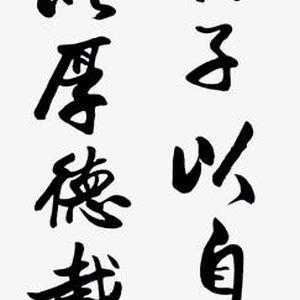 子以自
厚德載